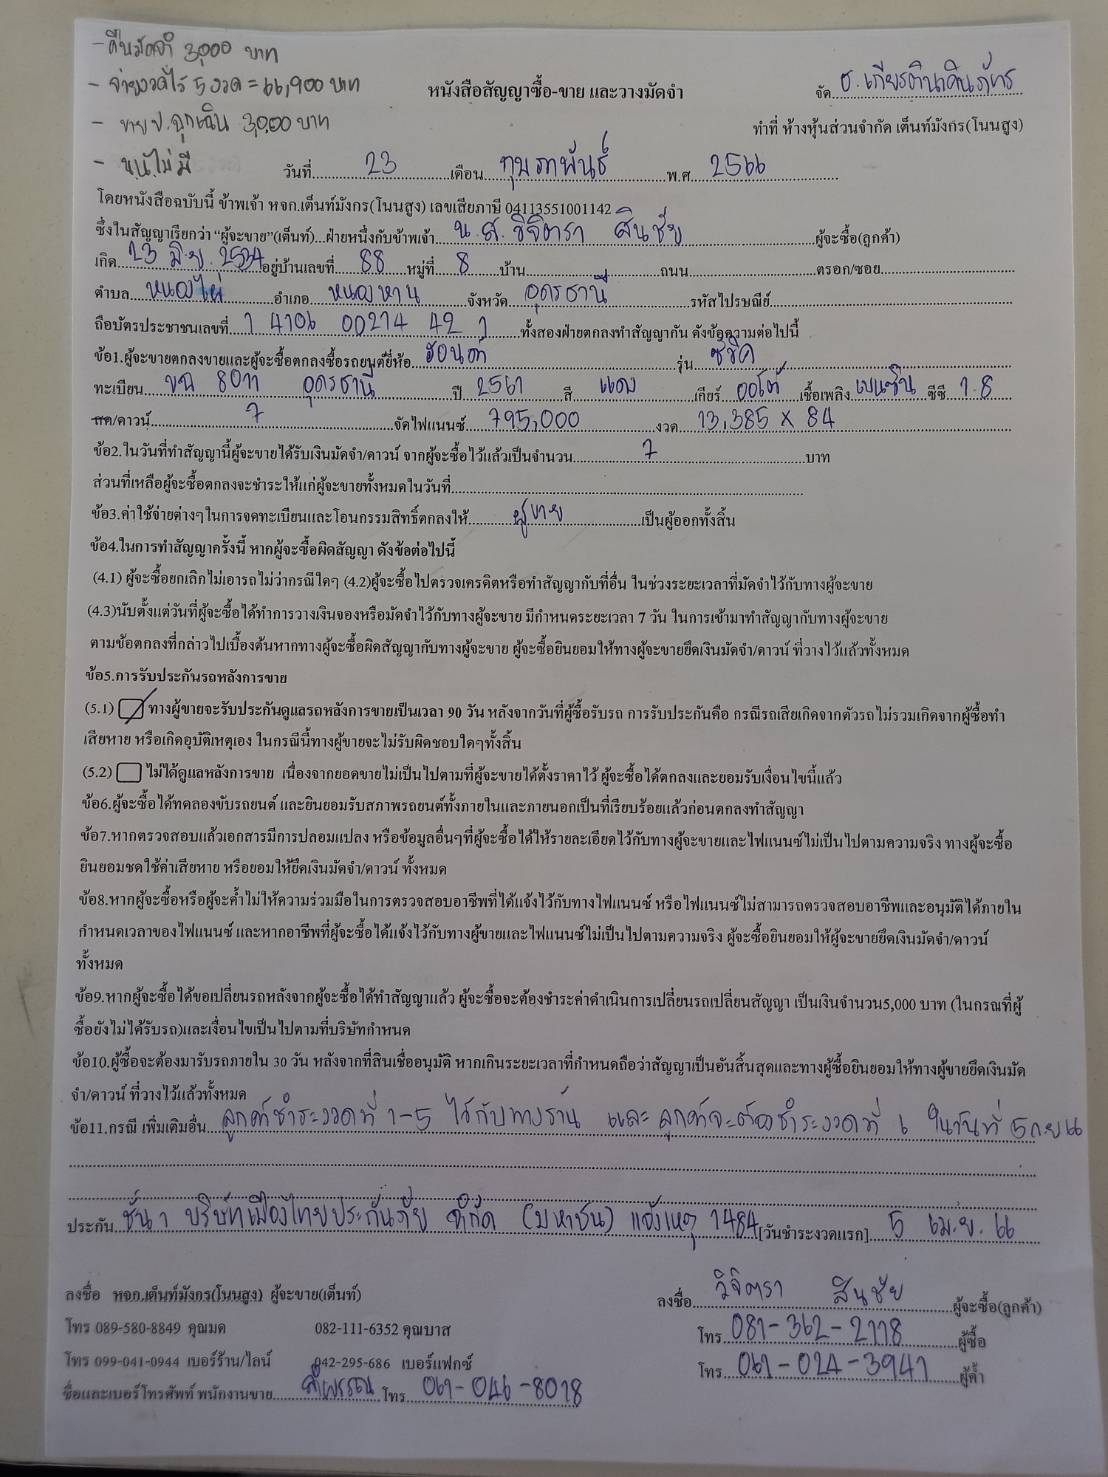 - คืนมัดจำ 3,000 บาท
- จ่ายงวดไว้ 5 งวด = 66,900 บาท
- ขาย ป.ฉุกเฉิน 3,000 บาท
- ไม่มี
หนังสือสัญญาซื้อ-ขาย และวางมัดจำ
จัด ธ.เกียรตินาคินภัทร
ทำที่ ห้างหุ้นส่วนจำกัด เต็นท์มังกร(โนนสูง)
วันที่ 23 เดือน กุมภาพันธ์ พ.ศ. 2566
โดยหนังสือฉบับนี้ ข้าพเจ้า หจก.เต็นท์มังกร(โนนสูง) เลขเสียภาษี 04113551001142
ซึ่งในสัญญาเรียกว่า "ผู้จะขาย"(เต็นท์)...ฝ่ายหนึ่งกับข้าพเจ้า น.ส. วิจิตรา สินชัย ผู้จะซื้อ(ลูกค้า)
เกิด 23 มิ.ย. 2534 อยู่บ้านเลขที่ 88 หมู่ที่ 8 บ้าน ถนน ตรอก/ซอย
ตำบล หนองไผ่ อำเภอ หนองหาน จังหวัด อุดรธานี รหัสไปรษณีย์
ถือบัตรประชาชนเลขที่ 1 4106 00214 42 1 ทั้งสองฝ่ายตกลงทำสัญญากัน ดังข้อความต่อไปนี้
ข้อ1.ผู้จะขายตกลงขายและผู้จะซื้อตกลงซื้อรถยนต์ยี่ห้อ ฮอนด้า รุ่น ซีวิค
ทะเบียน ขฉ 8011 อุดรธานี ปี 2561 สี แดง เกียร์ ออโต้ เชื้อเพลิง เบนซิน ซีซี 1.8
สด/ดาวน์ 7 จัดไฟแนนซ์ 795,000 งวด 13,385 x 84
ข้อ2.ในวันที่ทำสัญญานี้ผู้จะขายได้รับเงินมัดจำ/ดาวน์ จากผู้จะซื้อไว้แล้วเป็นจำนวน 7 บาท
ส่วนที่เหลือผู้จะซื้อตกลงจะชำระให้แก่ผู้จะขายทั้งหมดในวันที่
ข้อ3.ค่าใช้จ่ายต่างๆในการจดทะเบียนและโอนกรรมสิทธิ์ตกลงให้ ผู้ขาย เป็นผู้ออกทั้งสิ้น
ข้อ4.ในการทำสัญญาครั้งนี้ หากผู้จะซื้อผิดสัญญา ดังข้อต่อไปนี้
(4.1) ผู้จะซื้อยกเลิกไม่เอารถไม่ว่ากรณีใดๆ (4.2)ผู้จะซื้อไปตรวจเครดิตหรือทำสัญญากับที่อื่น ในช่วงระยะเวลาที่มัดจำไว้กับทางผู้จะขาย
(4.3)นับตั้งแต่วันที่ผู้จะซื้อได้ทำการวางเงินจองหรือมัดจำไว้กับทางผู้จะขาย มีกำหนดระยะเวลา 7 วัน ในการเข้ามาทำสัญญากับทางผู้จะขาย
ตามข้อตกลงที่กล่าวไปเบื้องต้นหากทางผู้จะซื้อผิดสัญญากับทางผู้จะขาย ผู้จะซื้อยินยอมให้ทางผู้จะขายยึดเงินมัดจำ/ดาวน์ ที่วางไว้แล้วทั้งหมด
ข้อ5.การรับประกันรถหลังการขาย
(5.1) ทางผู้ขายจะรับประกันดูแลรถหลังการขายเป็นเวลา 90 วัน หลังจากวันที่ผู้ซื้อรับรถ การรับประกันคือ กรณีรถเสียเกิดจากตัวรถไม่รวมเกิดจากผู้ซื้อทำ
เสียหาย หรือเกิดอุบัติเหตุเอง ในกรณีนี้ทางผู้ขายจะไม่รับผิดชอบใดๆทั้งสิ้น
(5.2) ไม่ได้ดูแลหลังการขาย เนื่องจากยอดขายไม่เป็นไปตามที่ผู้จะขายได้ตั้งราคาไว้ ผู้จะซื้อได้ตกลงและยอมรับเงื่อนไขนี้แล้ว
ข้อ6.ผู้จะซื้อได้ทดลองขับรถยนต์ และยินยอมรับสภาพรถยนต์ทั้งภายในและภายนอกเป็นที่เรียบร้อยแล้วก่อนตกลงทำสัญญา
ข้อ7.หากตรวจสอบแล้วเอกสารมีการปลอมแปลง หรือข้อมูลอื่นๆที่ผู้จะซื้อได้ให้รายละเอียดไว้กับทางผู้จะขายและไฟแนนซ์ไม่เป็นไปตามความจริง ทางผู้จะซื้อ
ยินยอมชดใช้ค่าเสียหาย หรือยอมให้ยึดเงินมัดจำ/ดาวน์ ทั้งหมด
ข้อ8.หากผู้จะซื้อหรือผู้จะค้ำไม่ให้ความร่วมมือในการตรวจสอบอาชีพที่ได้แจ้งไว้กับทางไฟแนนซ์ หรือไฟแนนซ์ไม่สามารถตรวจสอบอาชีพและอนุมัติได้ภายใน
กำหนดเวลาของไฟแนนซ์ และหากอาชีพที่ผู้จะซื้อได้แจ้งไว้กับทางผู้ขายและไฟแนนซ์ไม่เป็นไปตามความจริง ผู้จะซื้อยินยอมให้ผู้จะขายยึดเงินมัดจำ/ดาวน์
ทั้งหมด
ข้อ9.หากผู้จะซื้อได้ขอเปลี่ยนรถหลังจากผู้จะซื้อได้ทำสัญญาแล้ว ผู้จะซื้อจะต้องชำระค่าดำเนินการเปลี่ยนรถเปลี่ยนสัญญา เป็นเงินจำนวน5,000 บาท (ในกรณที่ผู้
ซื้อยังไม่ได้รับรถ)และเงื่อนไขเป็นไปตามที่บริษัทกำหนด
ข้อ10.ผู้ซื้อจะต้องมารับรถภายใน 30 วัน หลังจากที่สินเชื่ออนุมัติ หากเกินระยะเวลาที่กำหนดถือว่าสัญญาเป็นอันสิ้นสุดและทางผู้ซื้อยินยอมให้ทางผู้ขายยึดเงินมัด
จำ/ดาวน์ ที่วางไว้แล้วทั้งหมด
ข้อ11.กรณี เพิ่มเติมอื่น ลูกค้าชำระงวดที่ 1-5 ไว้กับทางร้าน และ ลูกค้าจะต้องชำระงวดที่ 6 ในวันที่ 5 ก.ย 66
ประกัน ชั้น 1 บริษัทเมืองไทยประกันภัย จำกัด (มหาชน) แจ้งเหตุ 1484 [วันชำระงวดแรก] 5 เม.ย. 66
ลงชื่อ หจก.เต็นท์มังกร(โนนสูง) ผู้จะขาย(เต็นท์)
ลงชื่อ วิจิตรา สินชัย ผู้จะซื้อ(ลูกค้า)
โทร 089-580-8849 คุณมด 082-111-6352 คุณบาส
โทร 081-362-2118 ผู้ซื้อ
โทร 099-041-0944 เบอร์ร้าน/ไลน์ 042-295-686 เบอร์แฟกซ์
โทร 061-024-3941 ผู้ค้ำ
ชื่อและเบอร์โทรศัพท์ พนักงานขาย โทร 061-046-8018